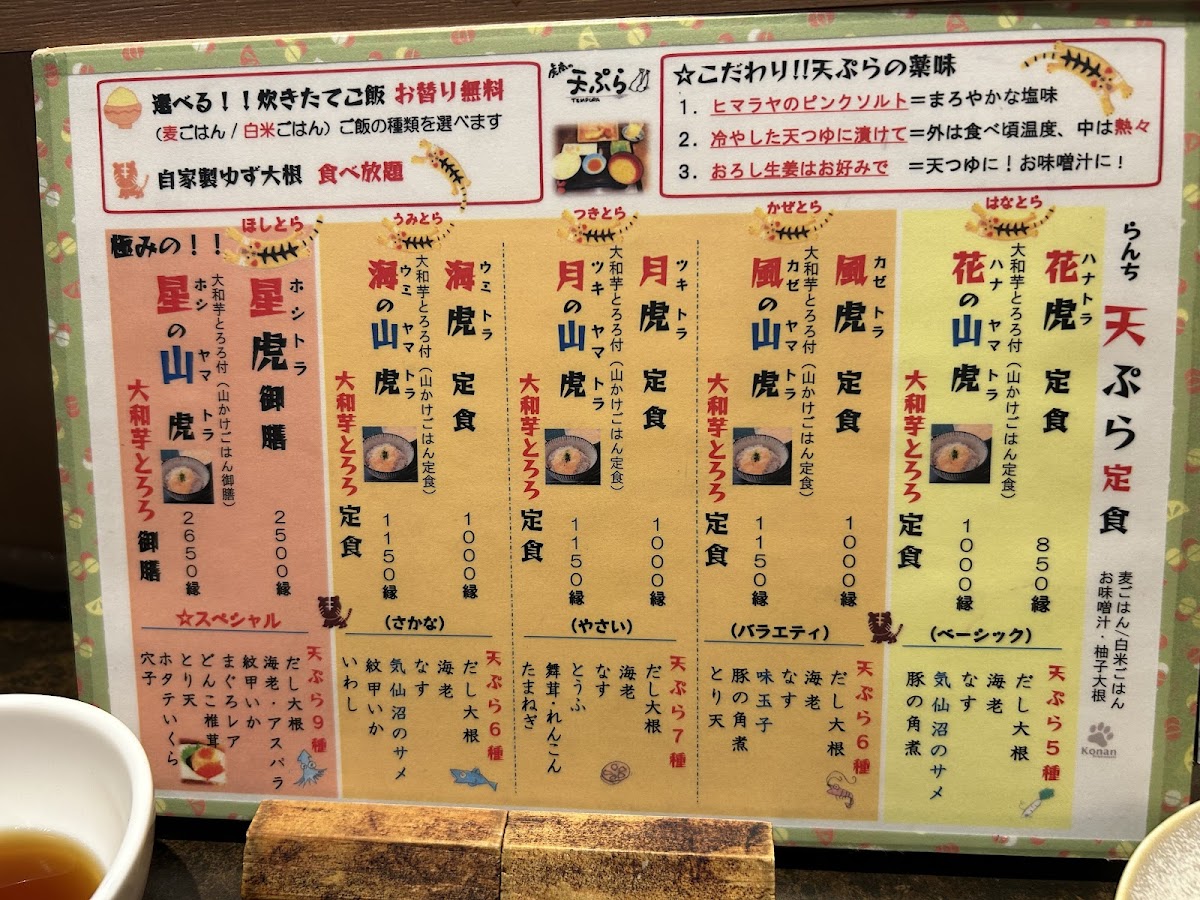 選べる！！炊きたてご飯 お替り無料
（麦ごはん / 白米ごはん）ご飯の種類を選べます
自家製ゆず大根 食べ放題
天ぷら
TEMPURA
☆こだわり!!天ぷらの薬味
1．ヒマラヤのピンクソルト＝まろやかな塩味
2．冷やした天つゆに漬けて＝外は食べ頃温度、中は熱々
3．おろし生姜はお好みで ＝天つゆに！お味噌汁に！
らんち 天ぷら定食
麦ごはん/白米ごはん
お味噌汁・柚子大根
Konan
はなとら
花虎 定食 850縁
ハナトラ
大和芋とろろ付（山かけごはん定食）
花の山虎 1000縁
ハナ ヤマ トラ
大和芋とろろ 定食
（ベーシック）
天ぷら5種
だし大根
海老
なす
気仙沼のサメ
豚の角煮
かぜとら
風虎 定食 1000縁
カゼトラ
大和芋とろろ付（山かけごはん定食）
風の山虎 1150縁
カゼ ヤマ トラ
大和芋とろろ 定食
（バラエティ）
天ぷら6種
だし大根
海老
なす
味玉子
豚の角煮
とり天
つきとら
月虎 定食 1000縁
ツキトラ
大和芋とろろ付（山かけごはん定食）
月の山虎 1150縁
ツキ ヤマ トラ
大和芋とろろ 定食
（やさい）
天ぷら7種
だし大根
海老
なす
とうふ
舞茸・れんこん
たまねぎ
うみとら
海虎 定食 1000縁
ウミトラ
大和芋とろろ付（山かけごはん定食）
海の山虎 1150縁
ウミ ヤマ トラ
大和芋とろろ 定食
（さかな）
天ぷら6種
だし大根
海老
なす
気仙沼のサメ
紋甲いか
いわし
ほしとら
極みの！！
星虎御膳 2500縁
ホシトラ
大和芋とろろ付（山かけごはん御膳）
星の山虎 2650縁
ホシ ヤマ トラ
大和芋とろろ 御膳
☆スペシャル
天ぷら9種
だし大根
海老・アスパラ
紋甲いか
まぐろレア
どんこ椎茸
とり天
ホタテいくら
穴子